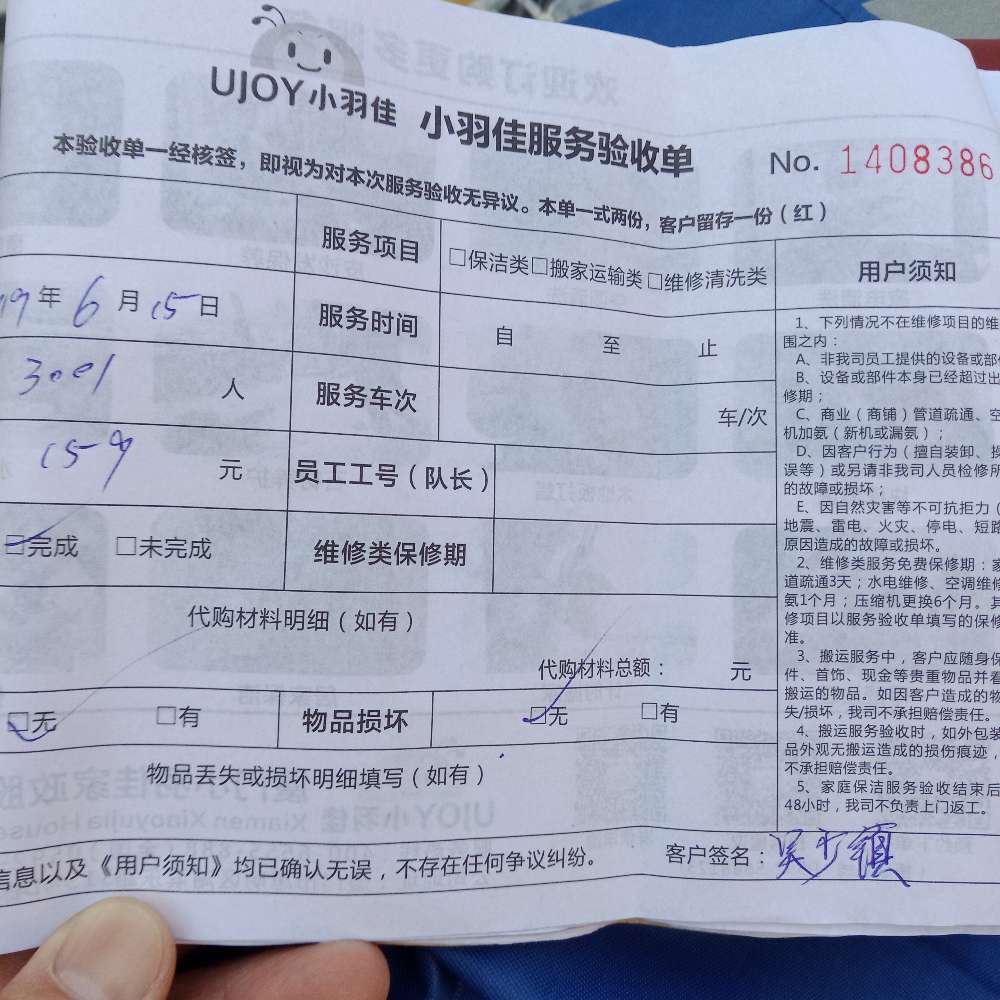 UJOY小羽佳 小羽佳服务验收单 No. 1408386
本验收单一经核签，即视为对本次服务验收无异议。本单一式两份，客户留存一份（红）
服务项目 □保洁类□搬家运输类□维修清洗类
19年6月15日 服务时间 自 至 止
3001 人 服务车次 车/次
159 元 员工工号（队长）
□完成 □未完成 维修类保修期
代购材料明细（如有）
代购材料总额： 元
□无 □有 物品损坏 □无 □有
物品丢失或损坏明细填写（如有）
信息以及《用户须知》均已确认无误，不存在任何争议纠纷。 客户签名：吴少镇
用户须知
1、下列情况不在维修项目的维
围之内：
A、非我司员工提供的设备或部件
B、设备或部件本身已经超过出
修期；
C、商业（商铺）管道疏通、空
机加氨（新机或漏氨）；
D、因客户行为（擅自装卸、操
误等）或另请非我司人员检修所
的故障或损坏；
E、因自然灾害等不可抗拒力（
地震、雷电、火灾、停电、短路
原因造成的故障或损坏。
2、维修类服务免费保修期：家
道疏通3天；水电维修、空调维修
氨1个月；压缩机更换6个月。其
修项目以服务验收单填写的保修
准。
3、搬运服务中，客户应随身保
件、首饰、现金等贵重物品并看
搬运的物品。如因客户造成的物
失/损坏，我司不承担赔偿责任。
4、搬运服务验收时，如外包装
品外观无搬运造成的损伤痕迹，
不承担赔偿责任。
5、家庭保洁服务验收结束后
48小时，我司不负责上门返工。